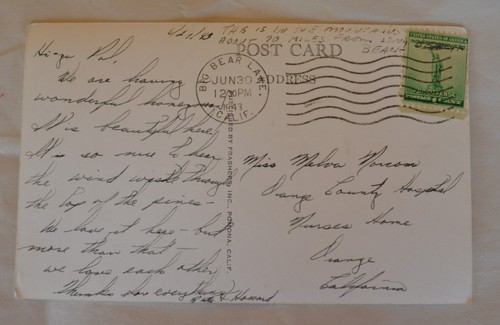 THIS IS IN THE MOUNTAINS
ABOUT 90 MILES FROM LONG
BEACH
POST CARD
ADDRESS
BIG BEAR LAKE,
JUN 30
12 PM
1943
CALIF.
UNITED STATES OF AMERICA
Hi-ya Pal,
We are having
wonderful honeymoon
It is beautiful here.
It is so nice to hear
the wind whistle through
the top of the pines -
We love it here - but
more than that -
we love each other
Thanks for everything
& Howard
BY FRASHERS INC., POMONA, CALIF.
Miss Melva Norcom
Orange County Hospital
Nurses Home
Orange
California